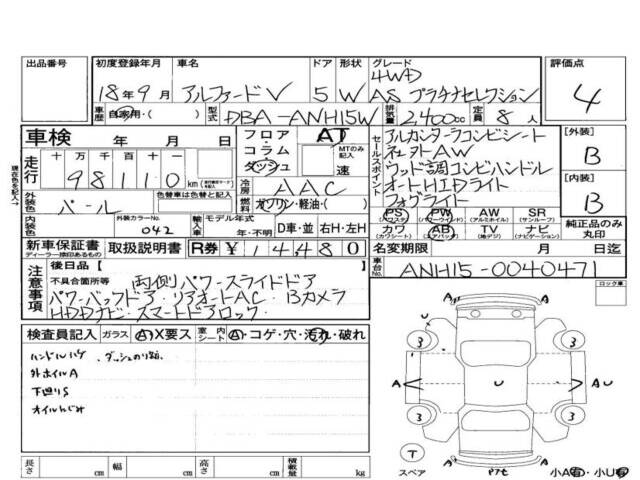 出品番号 初度登録年月 車名 ドア 形状 グレード 評価点
18年9月 アルファードV 5 W 4WD AS プラチナセレクション 4
車歴 自家用・( ) 型式 DBA-ANH15W 排気量 2400cc 定員 8人
車検 年 月 日 フロア・コラム・ダッシュ AT MTのみ記入 速
セールスポイント アルカンターラコンビシート
社外AW
ウッド調コンビハンドル
オートHIDライト
フォグライト
[外装] B
[内装] B
現在色を記入→
走行 十万千百十一 98110 km 冷房 AAC
外装色 パール 色替車は色替前の色 ( ) 燃料 ガソリン・軽油・( )
PS (パワステ) PW (パワーウインド) AW (アルミホイル) SR (サンルーフ)
カワ (カワシート) AB (エアバッグ) TV (地デジ) ナビ (ナビゲーション)
純正品のみ丸印
内装色 外装カラーNo. 042 輸入車 モデル年式 年 D車・並 右H・左H
新車保証書 ディーラー捺印あるもの 取扱説明書 R券 ¥14480
名変期限 月 日迄
車台No. ANH15-0040471
ロック車
注意事項 後日品【 】
不具合箇所等 両側パワースライドドア
パワーバックドア・リアオートAC・Bカメラ
HDDナビ・スマートドアロック・
検査員記入 ガラス A・X要ス 室内シート A・コゲ・穴・汚れ・破れ
ハンドルハゲ、ダッシュのり跡
外ホイルA
下廻りS
オイルにじみ
3 3 3 3
A U A U
T スペア
小A有・小U有
長さ cm 幅 cm 高さ cm 積載量 kg